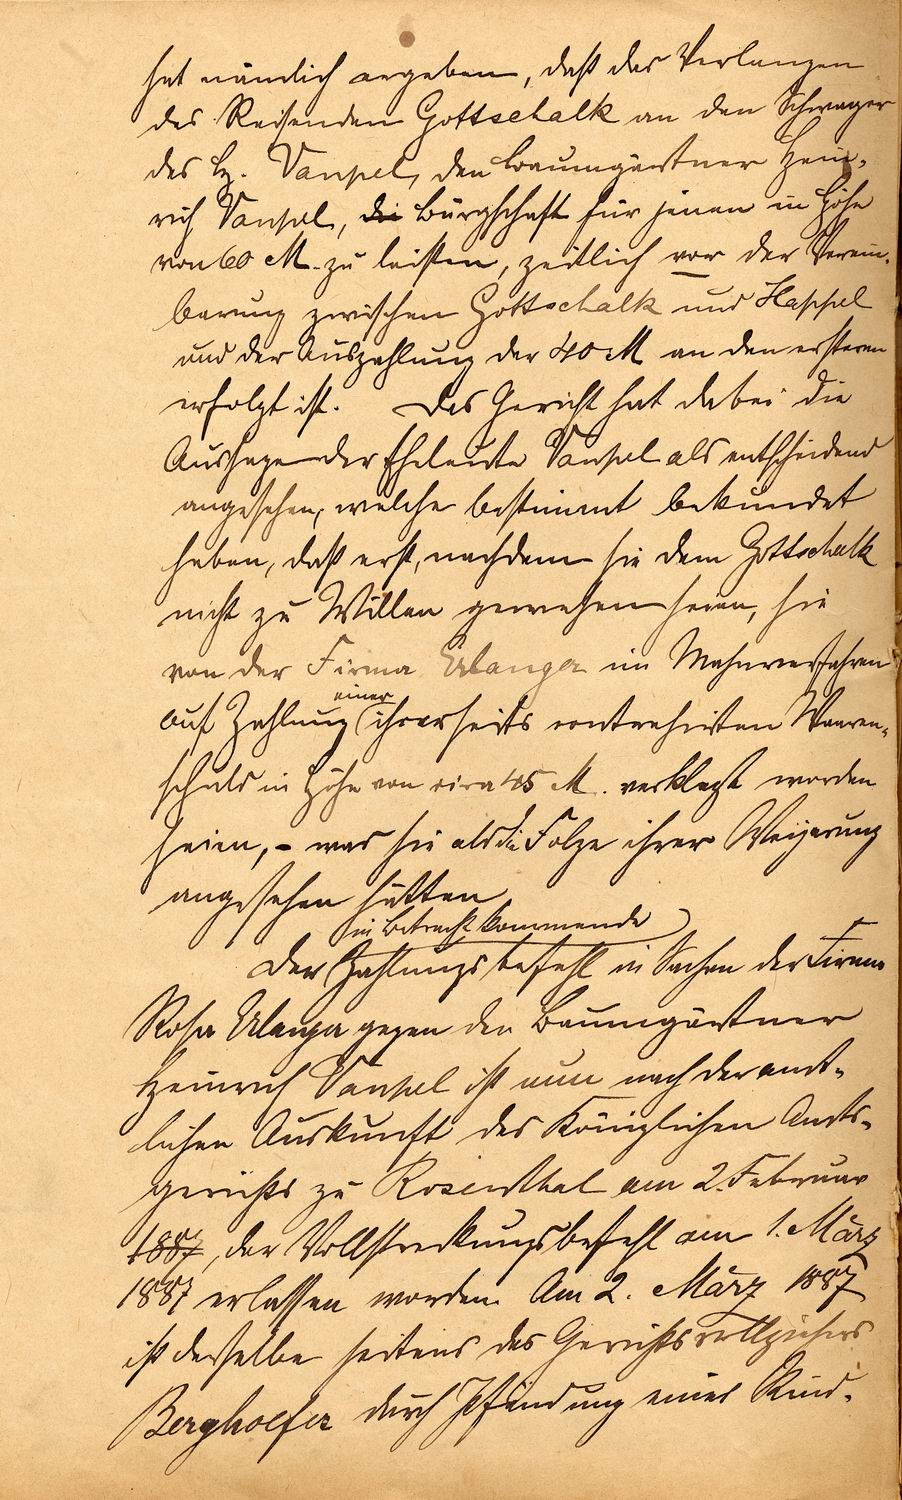 hat nämlich ergeben, daß das Verlangen
des Reisenden Gottschalk an den Schwager
des Vansel, den Baumgärtner Hein-
rich Vansel, die Bürgschaft für jenen in Höhe
von 60 M. zu leisten, zeitlich vor der Verein-
barung zwischen Gottschalk und Happel
und der Auszahlung der 40 M an den ersteren
erfolgt ist. Das Gericht hat dabei die
Aussage der Eheleute Vansel als entscheidend
angesehen, welche bestimmt bekundet
haben, daß erst, nachdem sie dem Gottschalk
nicht zu Willen gewesen seien, sie
von der Firma Ulanga im Mahnverfahren
auf Zahlung einer ihrerseits contrahirten Waaren-
schuld in Höhe von circa 45 M. verklagt worden
seien, - was sie als die Folge ihrer Weigerung
angesehen hätten
Der in Betracht kommende Zahlungsbefehl in Sachen der Firma
Rosa Ulanga gegen den Baumgärtner
Heinrich Vansel ist nun nach der amt-
lichen Auskunft des Königlichen Amts-
gerichts zu Rosenthal am 2. Februar
1887, der Vollstreckungsbefehl am 1. März
1887 erlassen worden. Am 2. März 1887
ist derselbe seitens des Gerichtsvollziehers
Berghoefer durch Pfändung eines Rind-